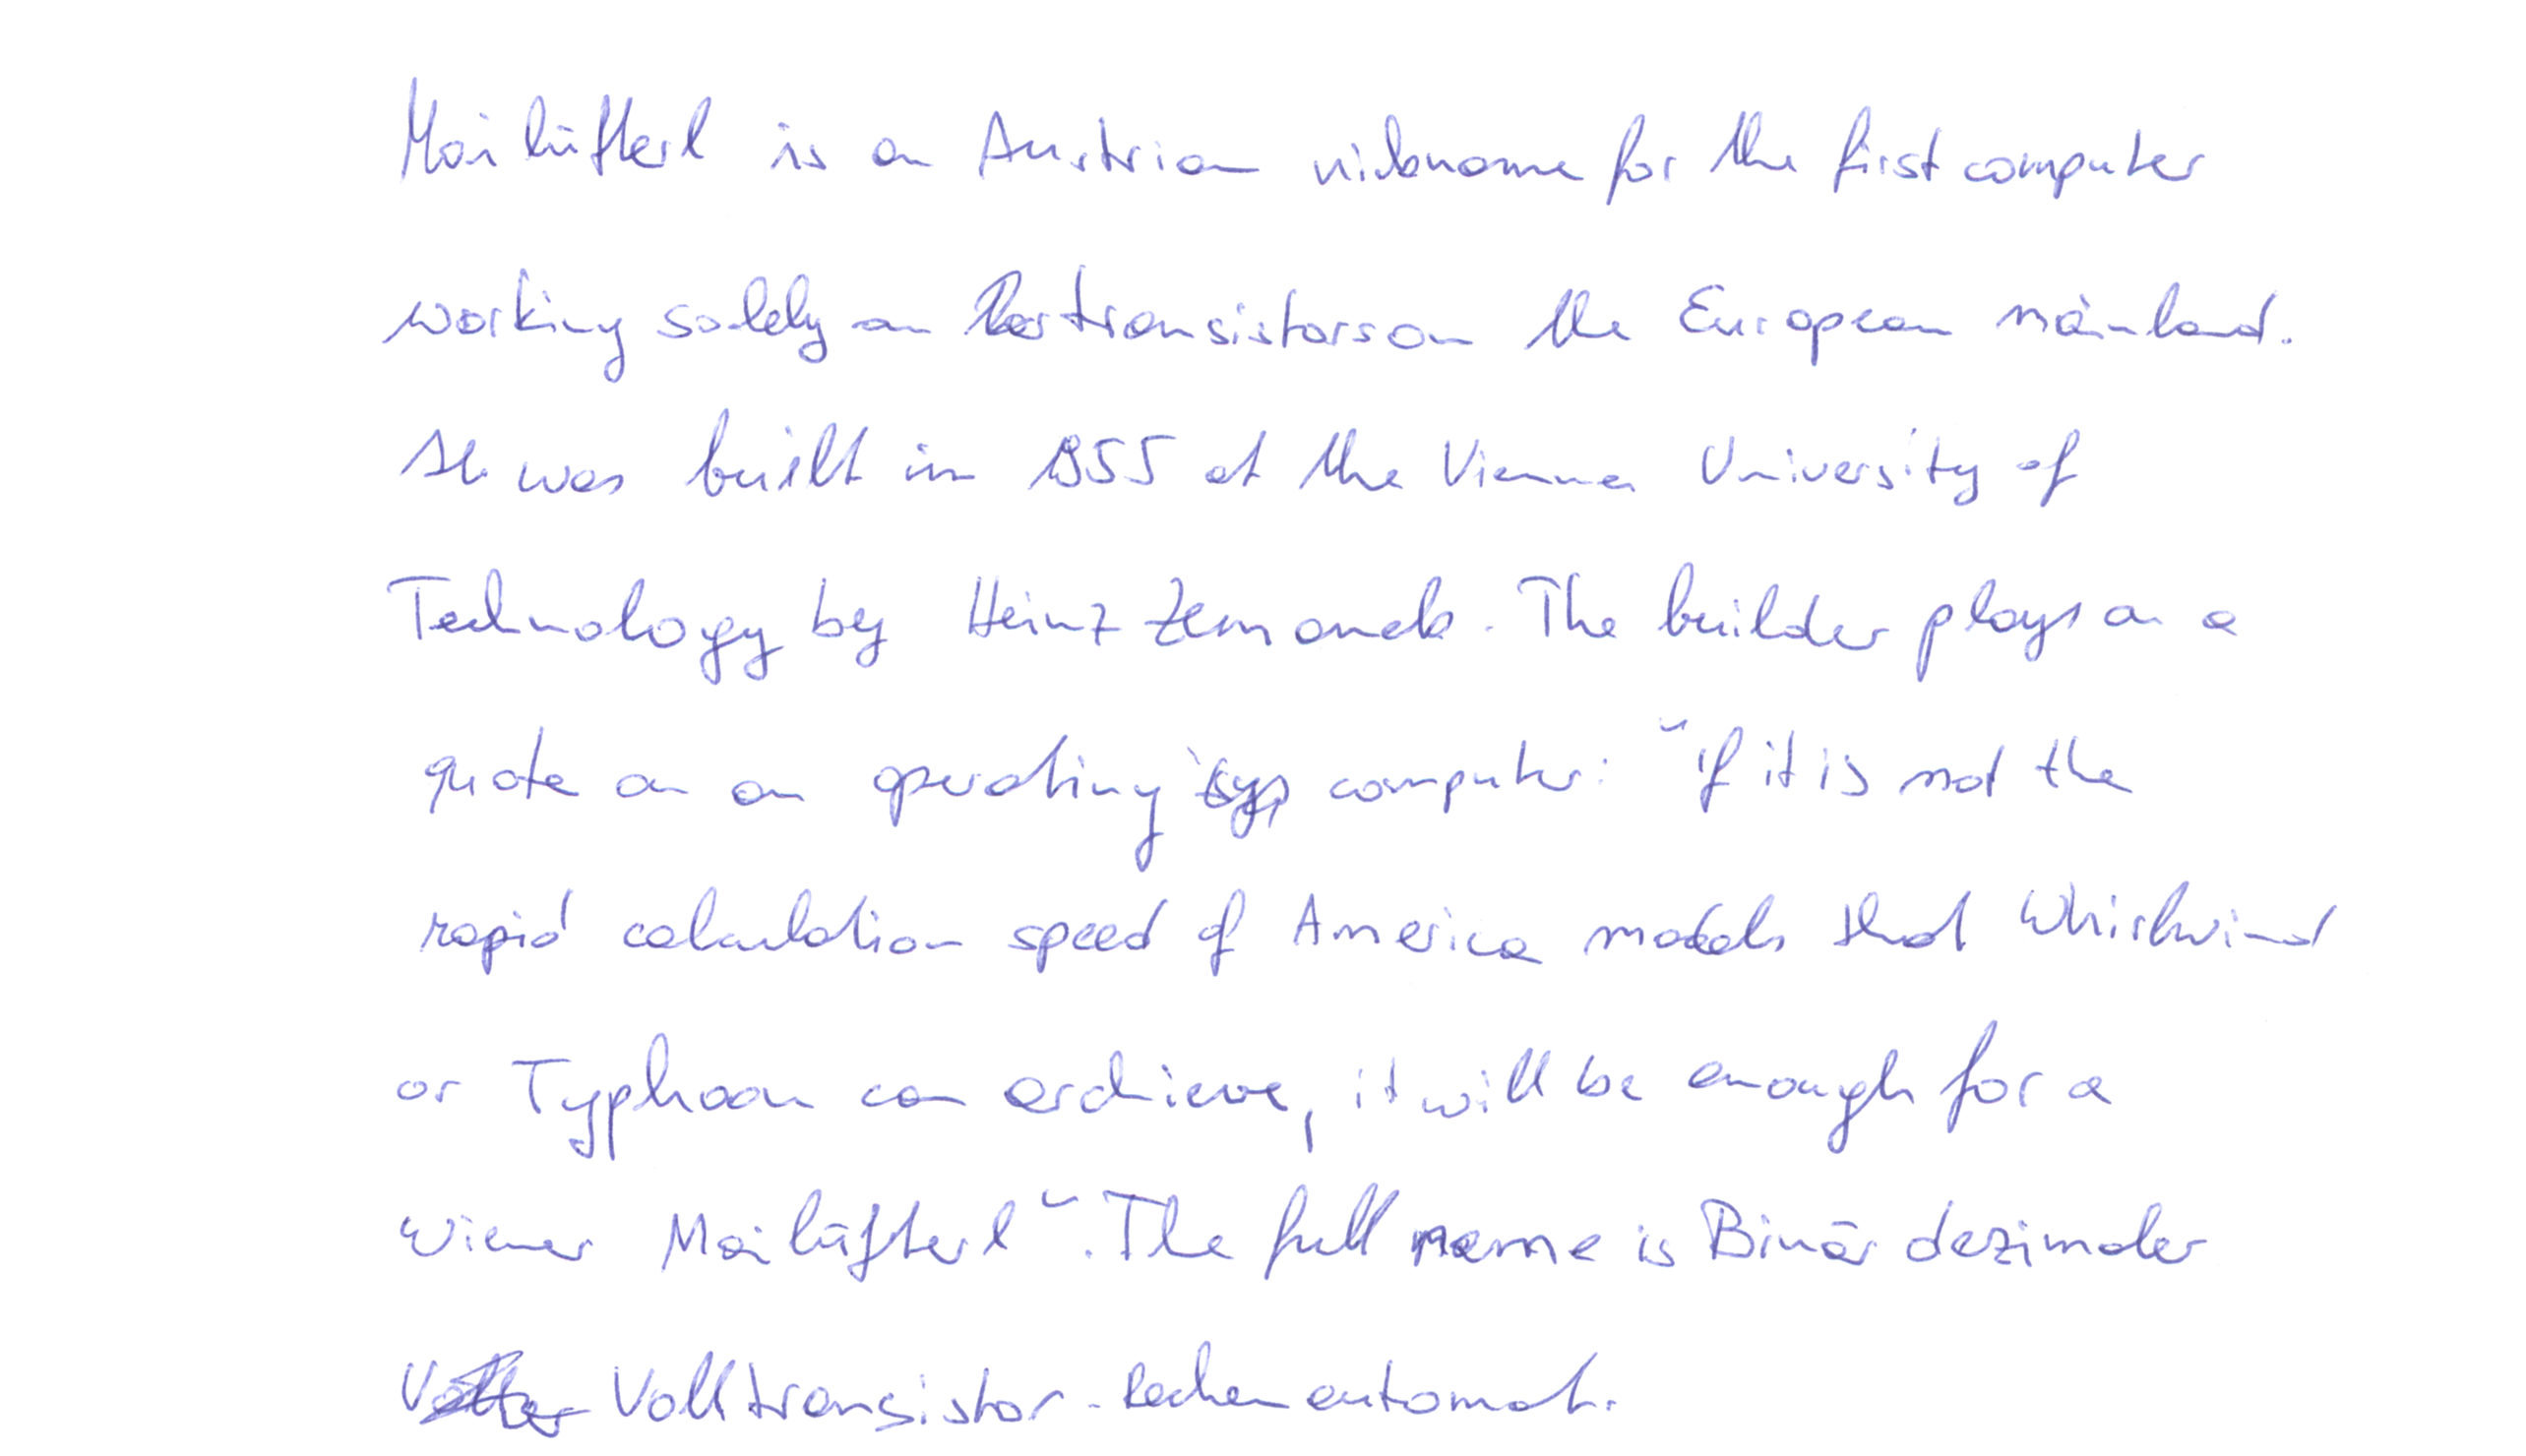 Mailüfterl is an Austrian nickname for the first computer
working solely on transistors on the European mainland.
It was built in 1955 at the Vienna University of
Technology by Heinz Zemanek. The builder plays on a
quote on an operating computer: "if it is not the
rapid calculation speed of America models that Whirlwind
or Typhoon can archieve, it will be enough for a
Wiener Mailüfterl". The full name is Binär dezimaler
Volltransistor-Rechenautomat.